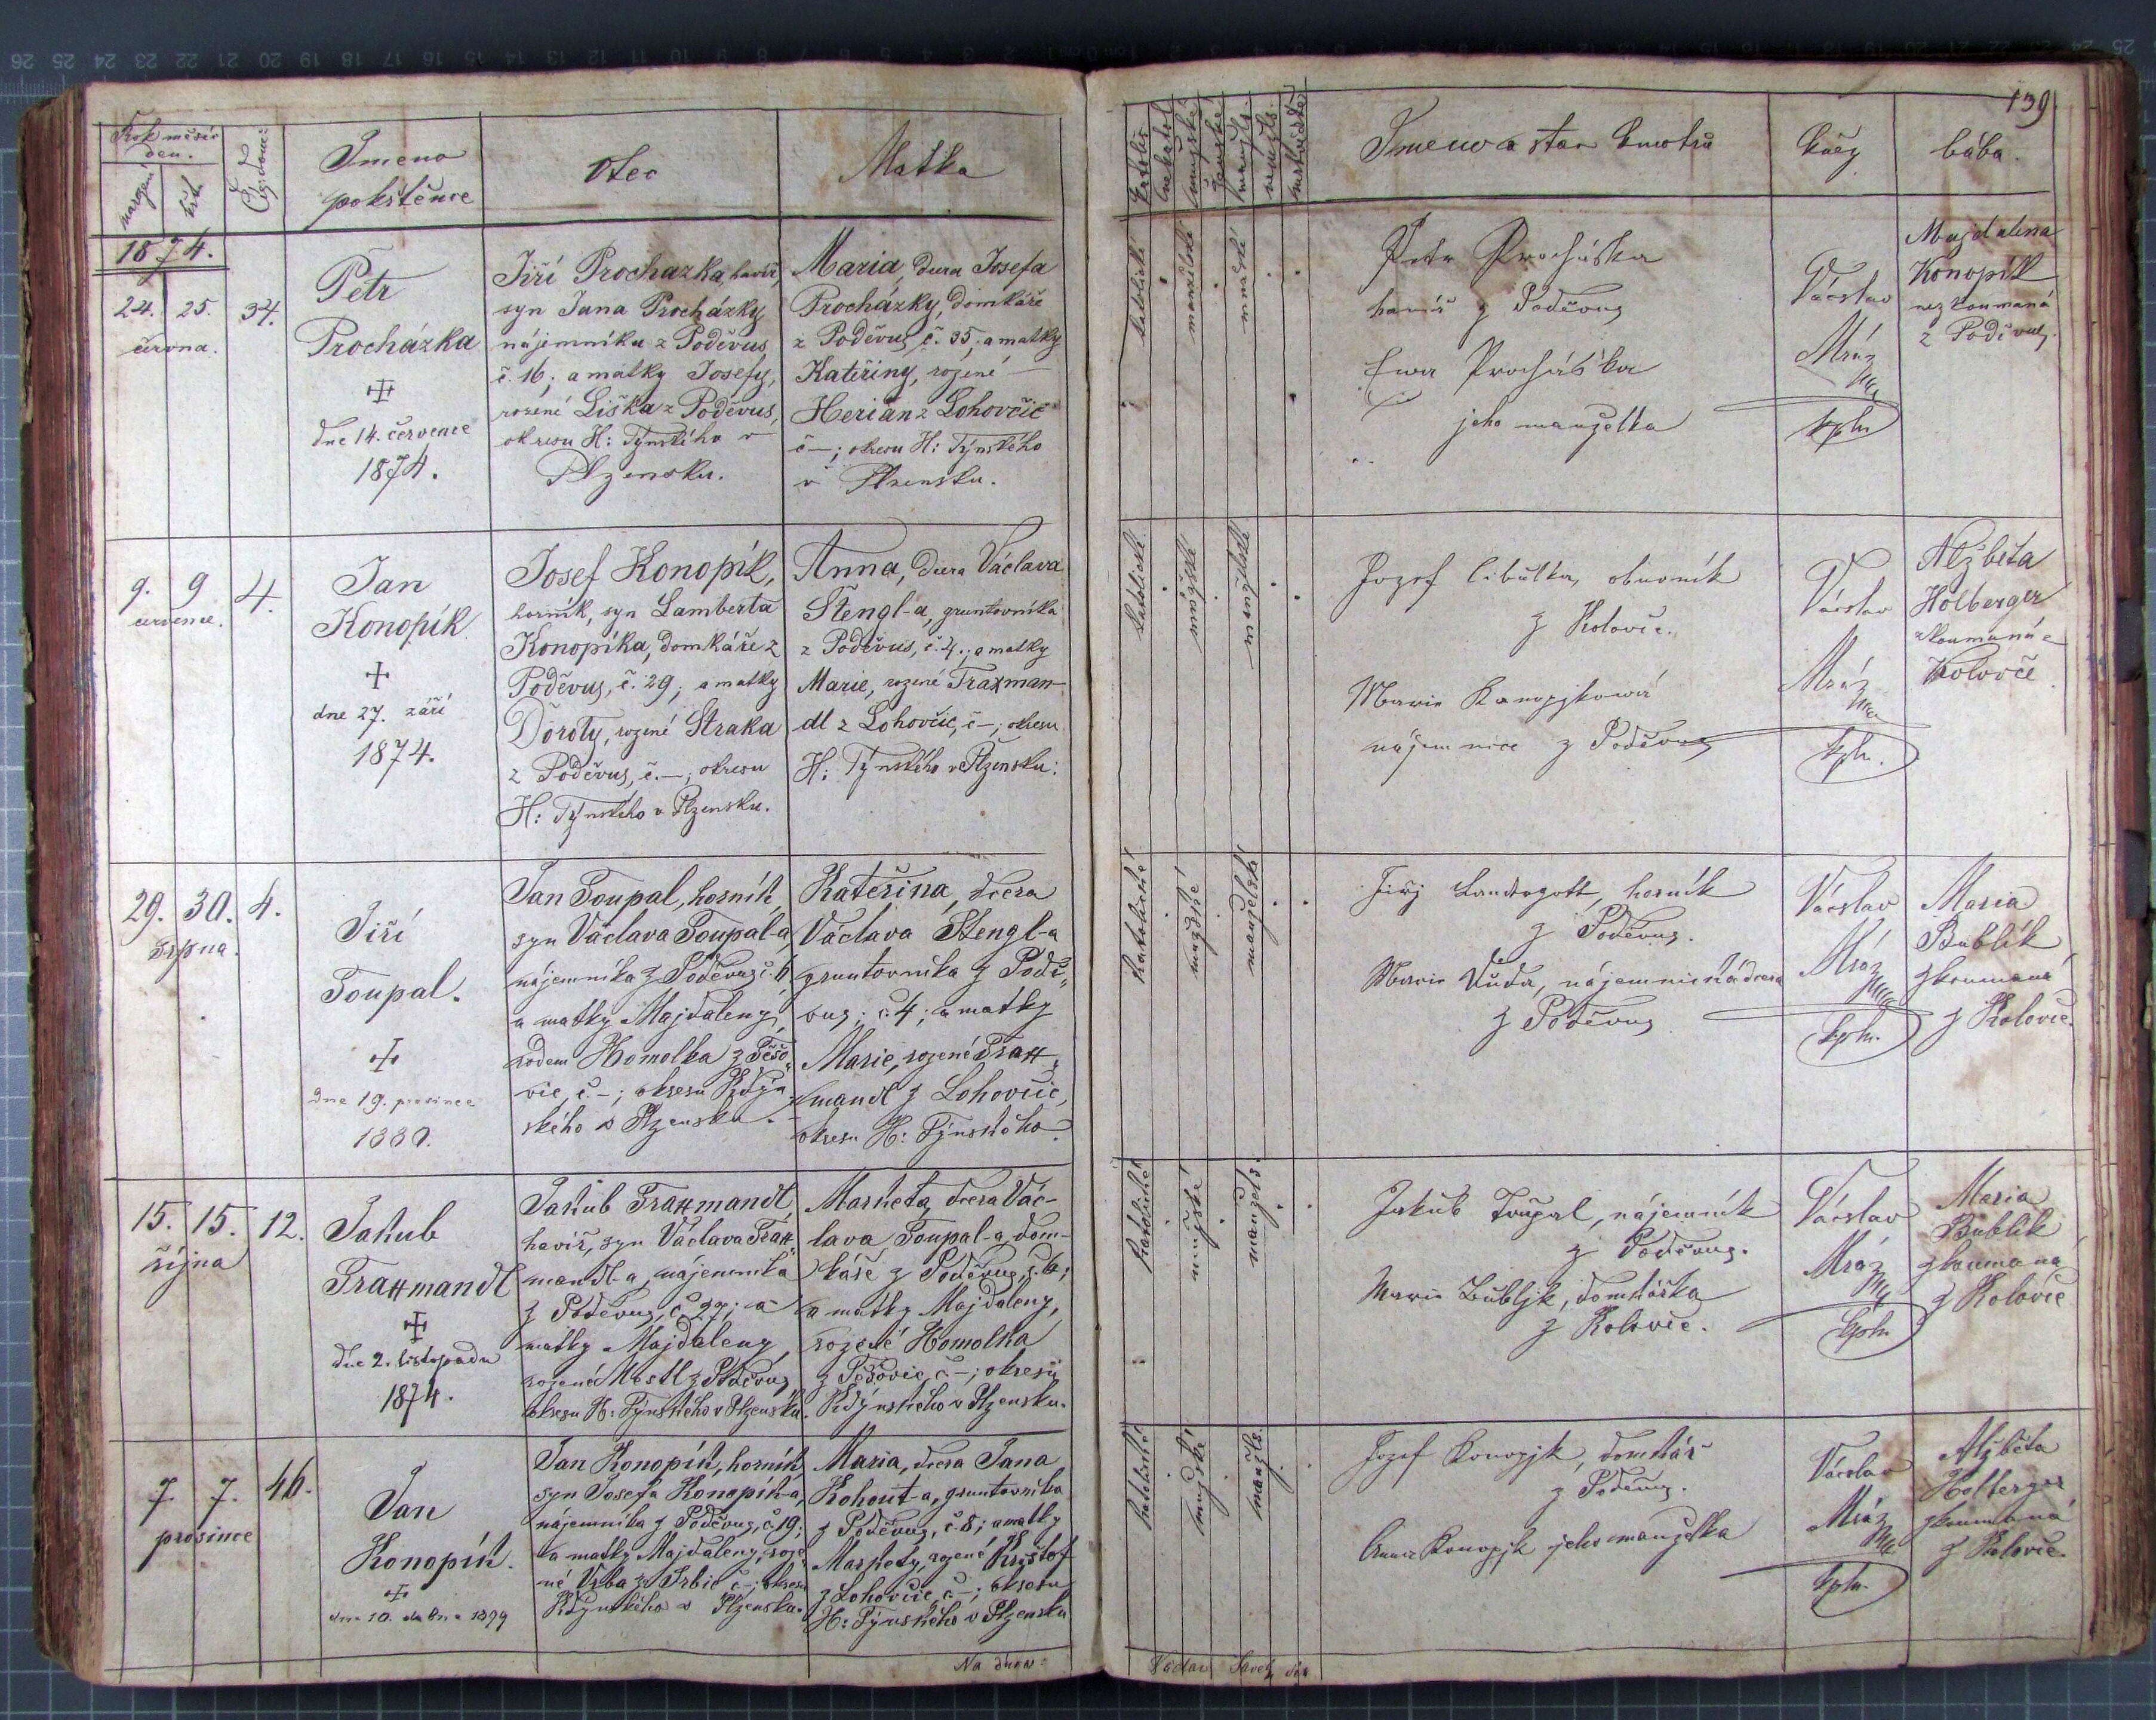 Rok měsíc
den.
narození
křtu
Čís. domu:
Imeno
pokřtěnce
Otec
Matka
1874.
24. 25. 34.
června.
Petr
Procházka
dne 14. července
1874.
Jiří Procházka, havíř,
syn Jana Procházky
nájemníka z Poděvus
č. 16; a matky Josefy,
rozené Liška z Poděvus,
okresu H: Týnského v
Plzensku.
Maria, dcera Josefa
Procházky, domkáře
z Poděvus, č. 35; a matky
Kateřiny, rozené —
Herian z Lohovčic
č —; okresu H: Týnského
v Plzensku.
9. 9 4.
července.
Jan
Konopík.
dne 27. září
1874.
Josef Konopík,
horník, syn Lamberta
Konopíka, domkáře z
Poděvus, č. 29; a matky
Doroty, rozené Straka
z Poděvus, č. —; okresu
H: Týnského v Plzensku.
Anna, dcera Václava
Štengl-a, gruntovníka
z Poděvus, č. 4.; a matky
Marie, rozené Traxman-
dl z Lohovčic, č —; okresu
H: Týnského v Plzensku.
29. 30. 4.
srpna.
Jiří
Toupal.
dne 19. prosince
Jan Toupal, horník,
syn Václava Toupal-a
nájemníka z Poděvus č. 6
a matky Majdaleny,
rodem Homolka z Těšo„
vic, č. —; okresu Kdýn
ského v Plzensku.
Kateřina, dcera
Václava Štengl-a
gruntovníka z Podě„
vus; č. 4; a matky
Marie, rozené Trax„
mandl z Lohovčic,
okresu H: Týnského.
15. 15. 12.
října
Jakub
Traxmandl
dne 2. listopadu
1874.
Jakub Traxmandl,
havíř, syn Václava Trax„
mandl-a, nájemníka
z Poděvus, č. 27; a
matky Majdaleny,
rozené z Poděvus
okresu H: Týnského v Plzensku.
Markéta, dcera Vác-
lava Toupal-a, dom-
káře z Poděvus, č. 6;
a matky Majdaleny,
rozené Homolka
z Těšovic, č —; okresu
Kdýnského v Plzensku.
7. 7. 46.
prosince
Jan
Konopík.
dne 10. dubna 1899
Jan Konopík, horník,
syn Josefa Konopík-a,
nájemníka z Poděvus, č. 19;
a matky Majdaleny, roze„
né Vrba ze Srbic č —; okresu
Kdýnského v Plzensku.
Maria, dcera Jana
Kohout-a, gruntovníka
z Poděvus, č. 8; a matky
Markéty, rozené Krištof
z Lohovčic, č —; okresu
H: Týnského v Plzensku
139
Imeno a stav kmotrů
kněz
bába.
katolické
manželské
Petr Procházka
havíř z Poděvus
Ewa Procházka
jeho manželka
Václav
Mráz
kpln
Magdalena
Konopík
nezkoumaná
z Poděvus.
katolické
mužské
manželské
Jozef Cibulka, obuvník
z Kolovče.
Marie Konopjkowá
nájemnice z Poděvus
Václav
Mráz
kpln.
Alžběta
Holberger
zkoumaná z
Kolovče
katolické
mužské
manželské
Jiřj Landsgott, horník
z Poděvus.
Marie Duda, nájemnická dcera
z Poděvus
Václav
Mráz
kpln.
Maria
Bublík
zkoumaná
z Kolovče.
katolické
mužské
manžels:
Jakub Toupal, nájemník
z Poděvus.
Marie Bubljk, domkářka
z Kolovče.
Václav
Mráz
kpln
Maria
Bublík
zkoumaná
z Kolovče
katolické
mužské
manžels.
Jozef Konopjk, domkář
z Poděvus.
Anna Konopjk jeho manželka
Václav
Mráz
kpln.
Alžběta
Holberger
zkoumaná
z Kolovče.